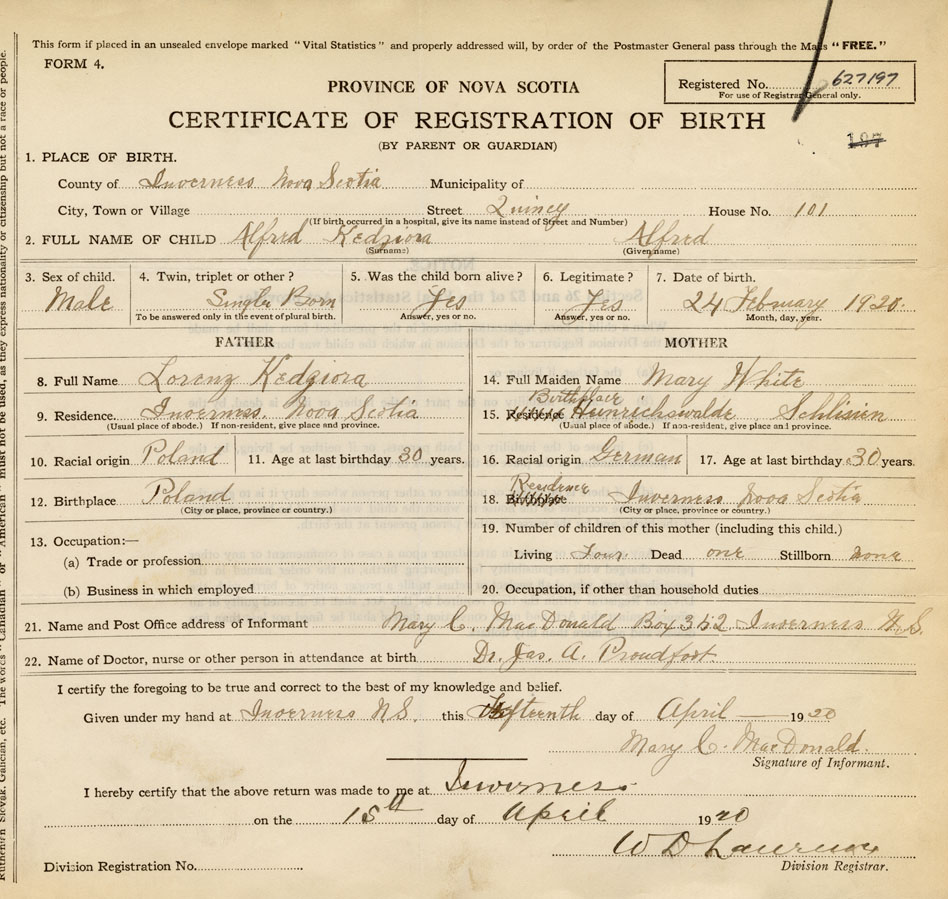 This form if placed in an unsealed envelope marked "Vital Statistics" and properly addressed will, by order of the Postmaster General pass through the Mails "FREE."
FORM 4.
Registered No. 627197
For use of Registrar General only.
PROVINCE OF NOVA SCOTIA
CERTIFICATE OF REGISTRATION OF BIRTH
(BY PARENT OR GUARDIAN)
197
1. PLACE OF BIRTH.
County of Inverness Nova Scotia Municipality of
City, Town or Village Street Quincy House No. 101
(If birth occurred in a hospital, give its name instead of Street and Number)
2. FULL NAME OF CHILD Alfred Kedziora Alfred
(Surname) (Given name)
3. Sex of child. 4. Twin, triplet or other? 5. Was the child born alive? 6. Legitimate? 7. Date of birth.
Male Single Born Yes Yes 24 February 1920
To be answered only in the event of plural birth. Answer, yes or no. Answer, yes or no. Month, day, year.
FATHER MOTHER
8. Full Name Lorenz Kedziora 14. Full Maiden Name Mary White
Birthplace
9. Residence Inverness Nova Scotia 15. Residence Heinrichswalde Schlisien
(Usual place of abode.) If non-resident, give place and province. (Usual place of abode.) If non-resident, give place and province.
10. Racial origin Poland 11. Age at last birthday 30 years. 16. Racial origin German 17. Age at last birthday 30 years.
Residence
12. Birthplace Poland 18. Birthplace Inverness Nova Scotia
(City or place, province or country.) (City or place, province or country.)
19. Number of children of this mother (including this child.)
13. Occupation:—
(a) Trade or profession Living Four Dead one Stillborn none
(b) Business in which employed 20. Occupation, if other than household duties
21. Name and Post Office address of Informant Mary C. MacDonald Box 352 Inverness N.S.
22. Name of Doctor, nurse or other person in attendance at birth Dr. Jas. A. Proudfoot
I certify the foregoing to be true and correct to the best of my knowledge and belief.
Given under my hand at Inverness N.S. this Fifteenth day of April 1920
Mary C. MacDonald.
Signature of Informant.
I hereby certify that the above return was made to me at Inverness
on the 15th day of April 1920
W D Lawrence
Division Registration No. Division Registrar.
Ruthenian Slovak, Galician, etc. The words "Canadian" or "American" must not be used, as they express nationality or citizenship but not a race or people.